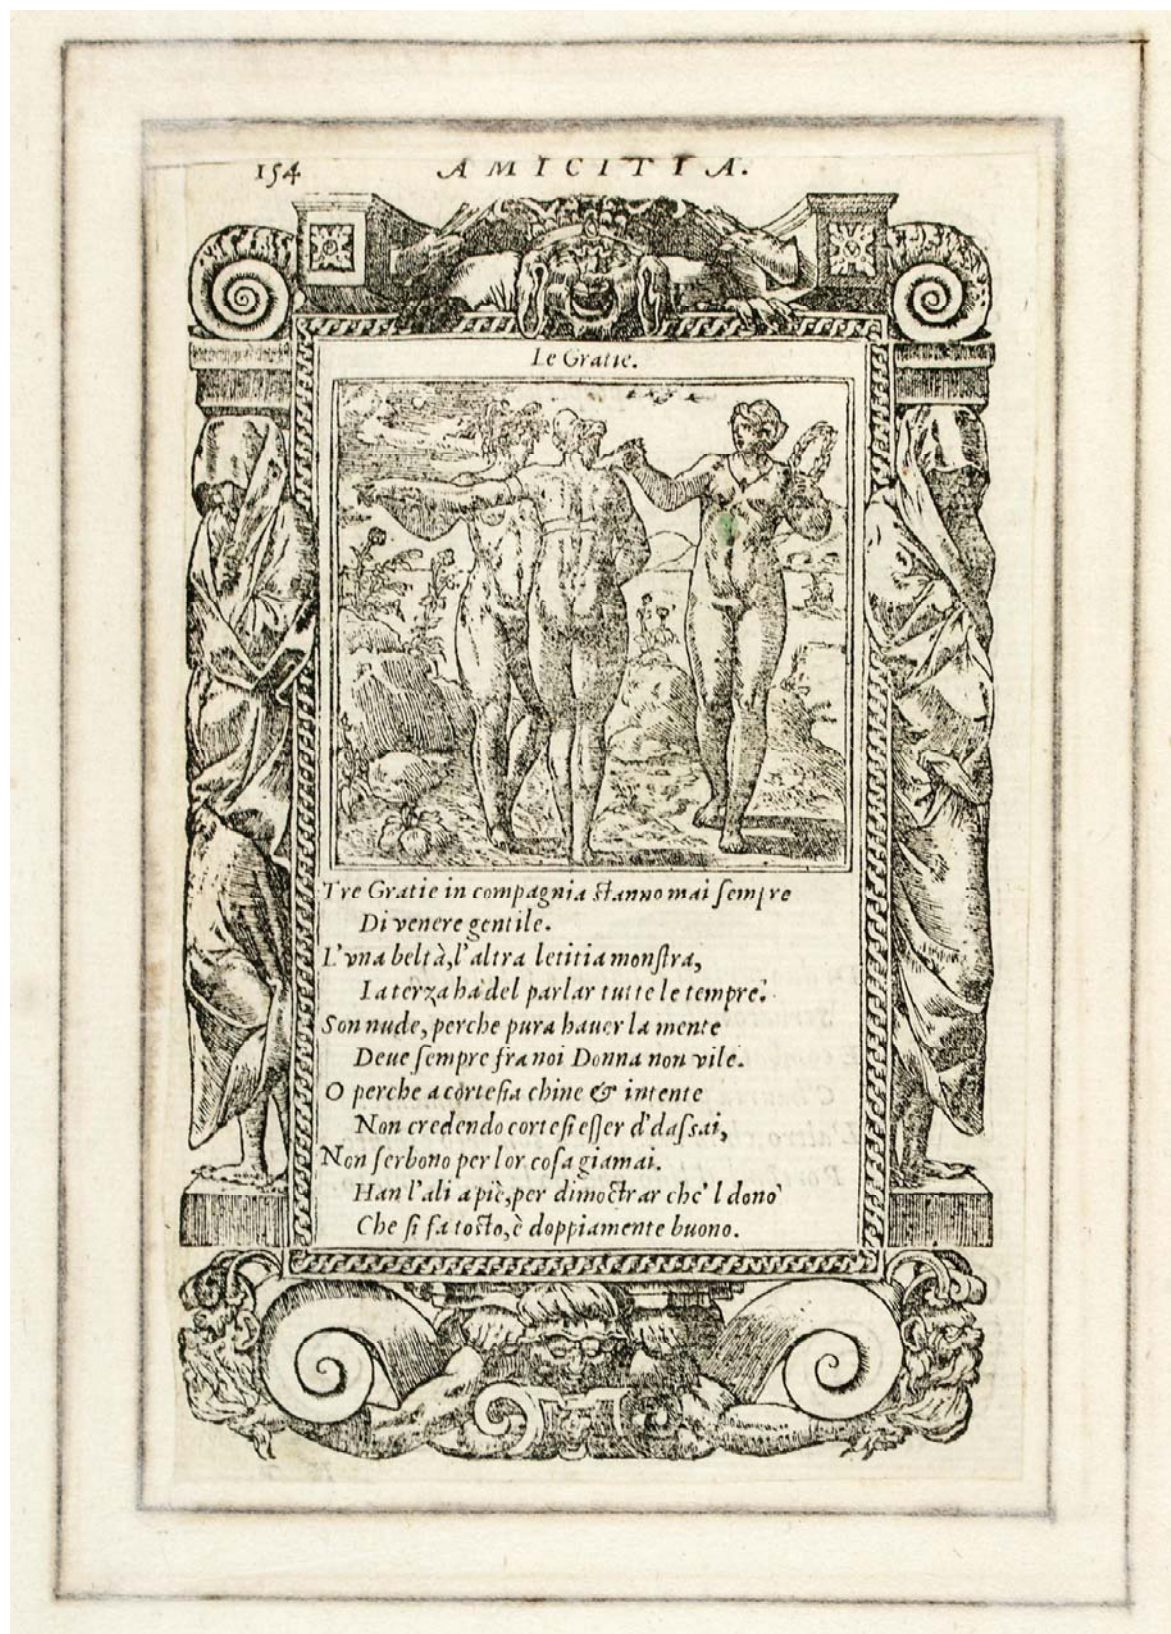 154 AMICITIA.
Le Gratie.
Tre Gratie in compagnia stanno mai ſempre
Di venere gentile.
L'vna beltà, l'altra letitia monſtra,
La terza ha del parlar tutte le tempre.
Son nude, perche pura hauer la mente
Deue ſempre fra noi Donna non vile.
O perche a corteſia chine & intente
Non credendo corteſi eſſer d'daſsai,
Non ſerbono per lor coſa giamai.
Han l'ali a piè, per dimoſtrar che'l dono
Che ſi fa toſto, è doppiamente buono.